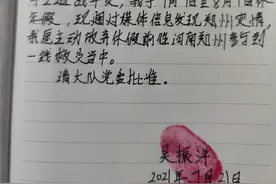 年假，现通过媒体信息发现郑州灾情，
我愿主动放弃休假前往河南郑州参与到
一线救灾当中。
请大队党委批准。
吴振洋
2021年7月21日